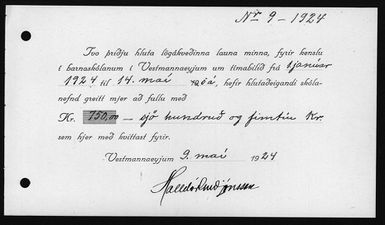 Nr. 9 - 1924
Tvo þriðju hluta lögákveðinna launa minna, fyrir kenslu
í barnaskólanum í Vestmannaeyjum um tímabilið frá 1 janúar
1924 til 14. maí s.á., hefir hlutaðeigandi skóla-
nefnd greitt mjer að fullu með
Kr. 750,00 — sjö hundruð og fimtíu Kr.
sem hjer með kvittast fyrir.
Vestmannaeyjum 9. maí 1924
Halldór Guðjónsson